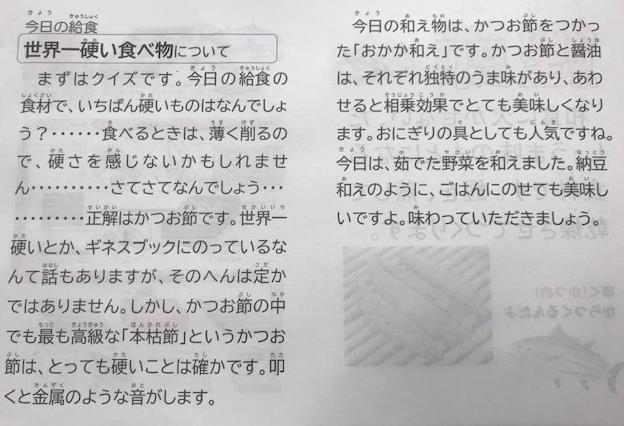 今日の給食
世界一硬い食べ物について
まずはクイズです。今日の給食の
食材で、いちばん硬いものはなんでしょ
う？‥‥‥食べるときは、薄く削るの
で、硬さを感じないかもしれませ
ん‥‥‥‥‥さてさてなんでしょう‥‥
‥‥‥‥正解はかつお節です。世界一
硬いとか、ギネスブックにのっているな
んて話もありますが、そのへんは定か
ではありません。しかし、かつお節の中
でも最も高級な「本枯節」というかつお
節は、とっても硬いことは確かです。叩
くと金属のような音がします。
今日の和え物は、かつお節をつかっ
た「おかか和え」です。かつお節と醤油
は、それぞれ独特のうま味があり、あわ
せると相乗効果でとても美味しくなり
ます。おにぎりの具としても人気ですね。
今日は、茹でた野菜を和えました。納豆
和えのように、ごはんにのせても美味し
いですよ。味わっていただきましょう。